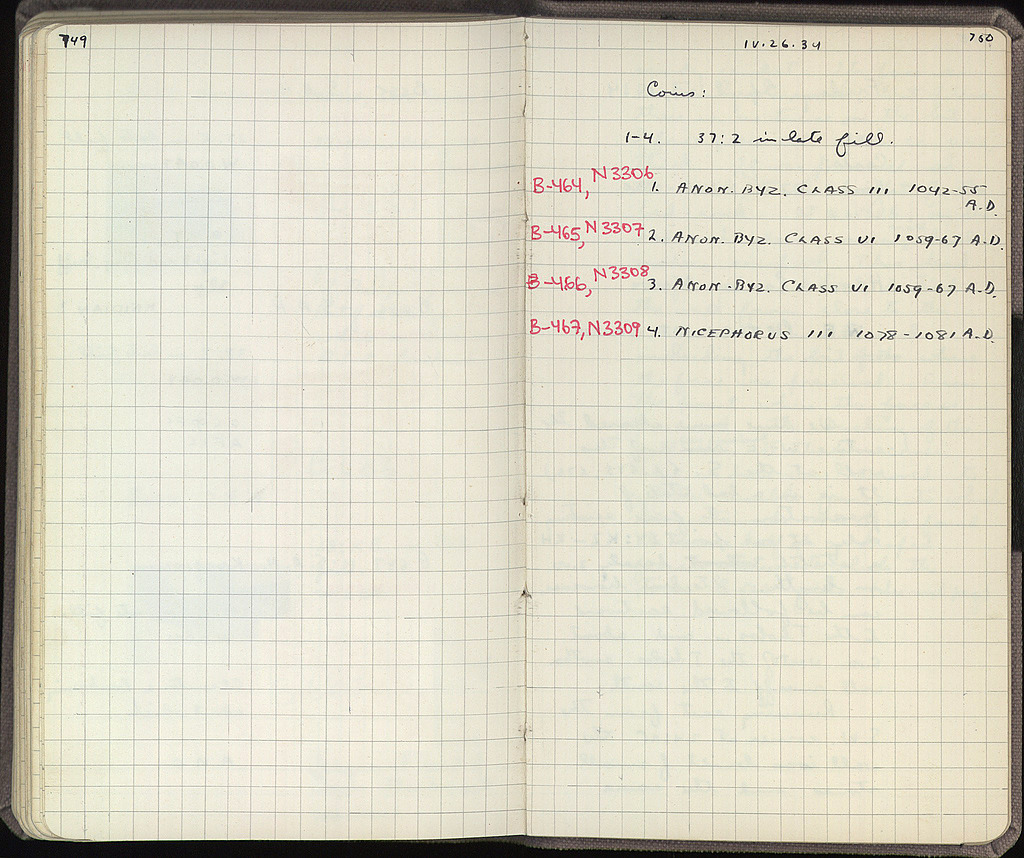 749
IV.26.34
750
Coins:
1-4. 37:2 in late fill.
B-464, N3306 1. ANON. BYZ. CLASS III 1042-55
A.D.
B-465, N3307 2. ANON. BYZ. CLASS VI 1059-67 A.D.
B-466, N3308 3. ANON. BYZ. CLASS VI 1059-67 A.D.
B-467, N3309 4. NICEPHORUS III 1078-1081 A.D.